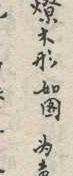 燎木形如圖為